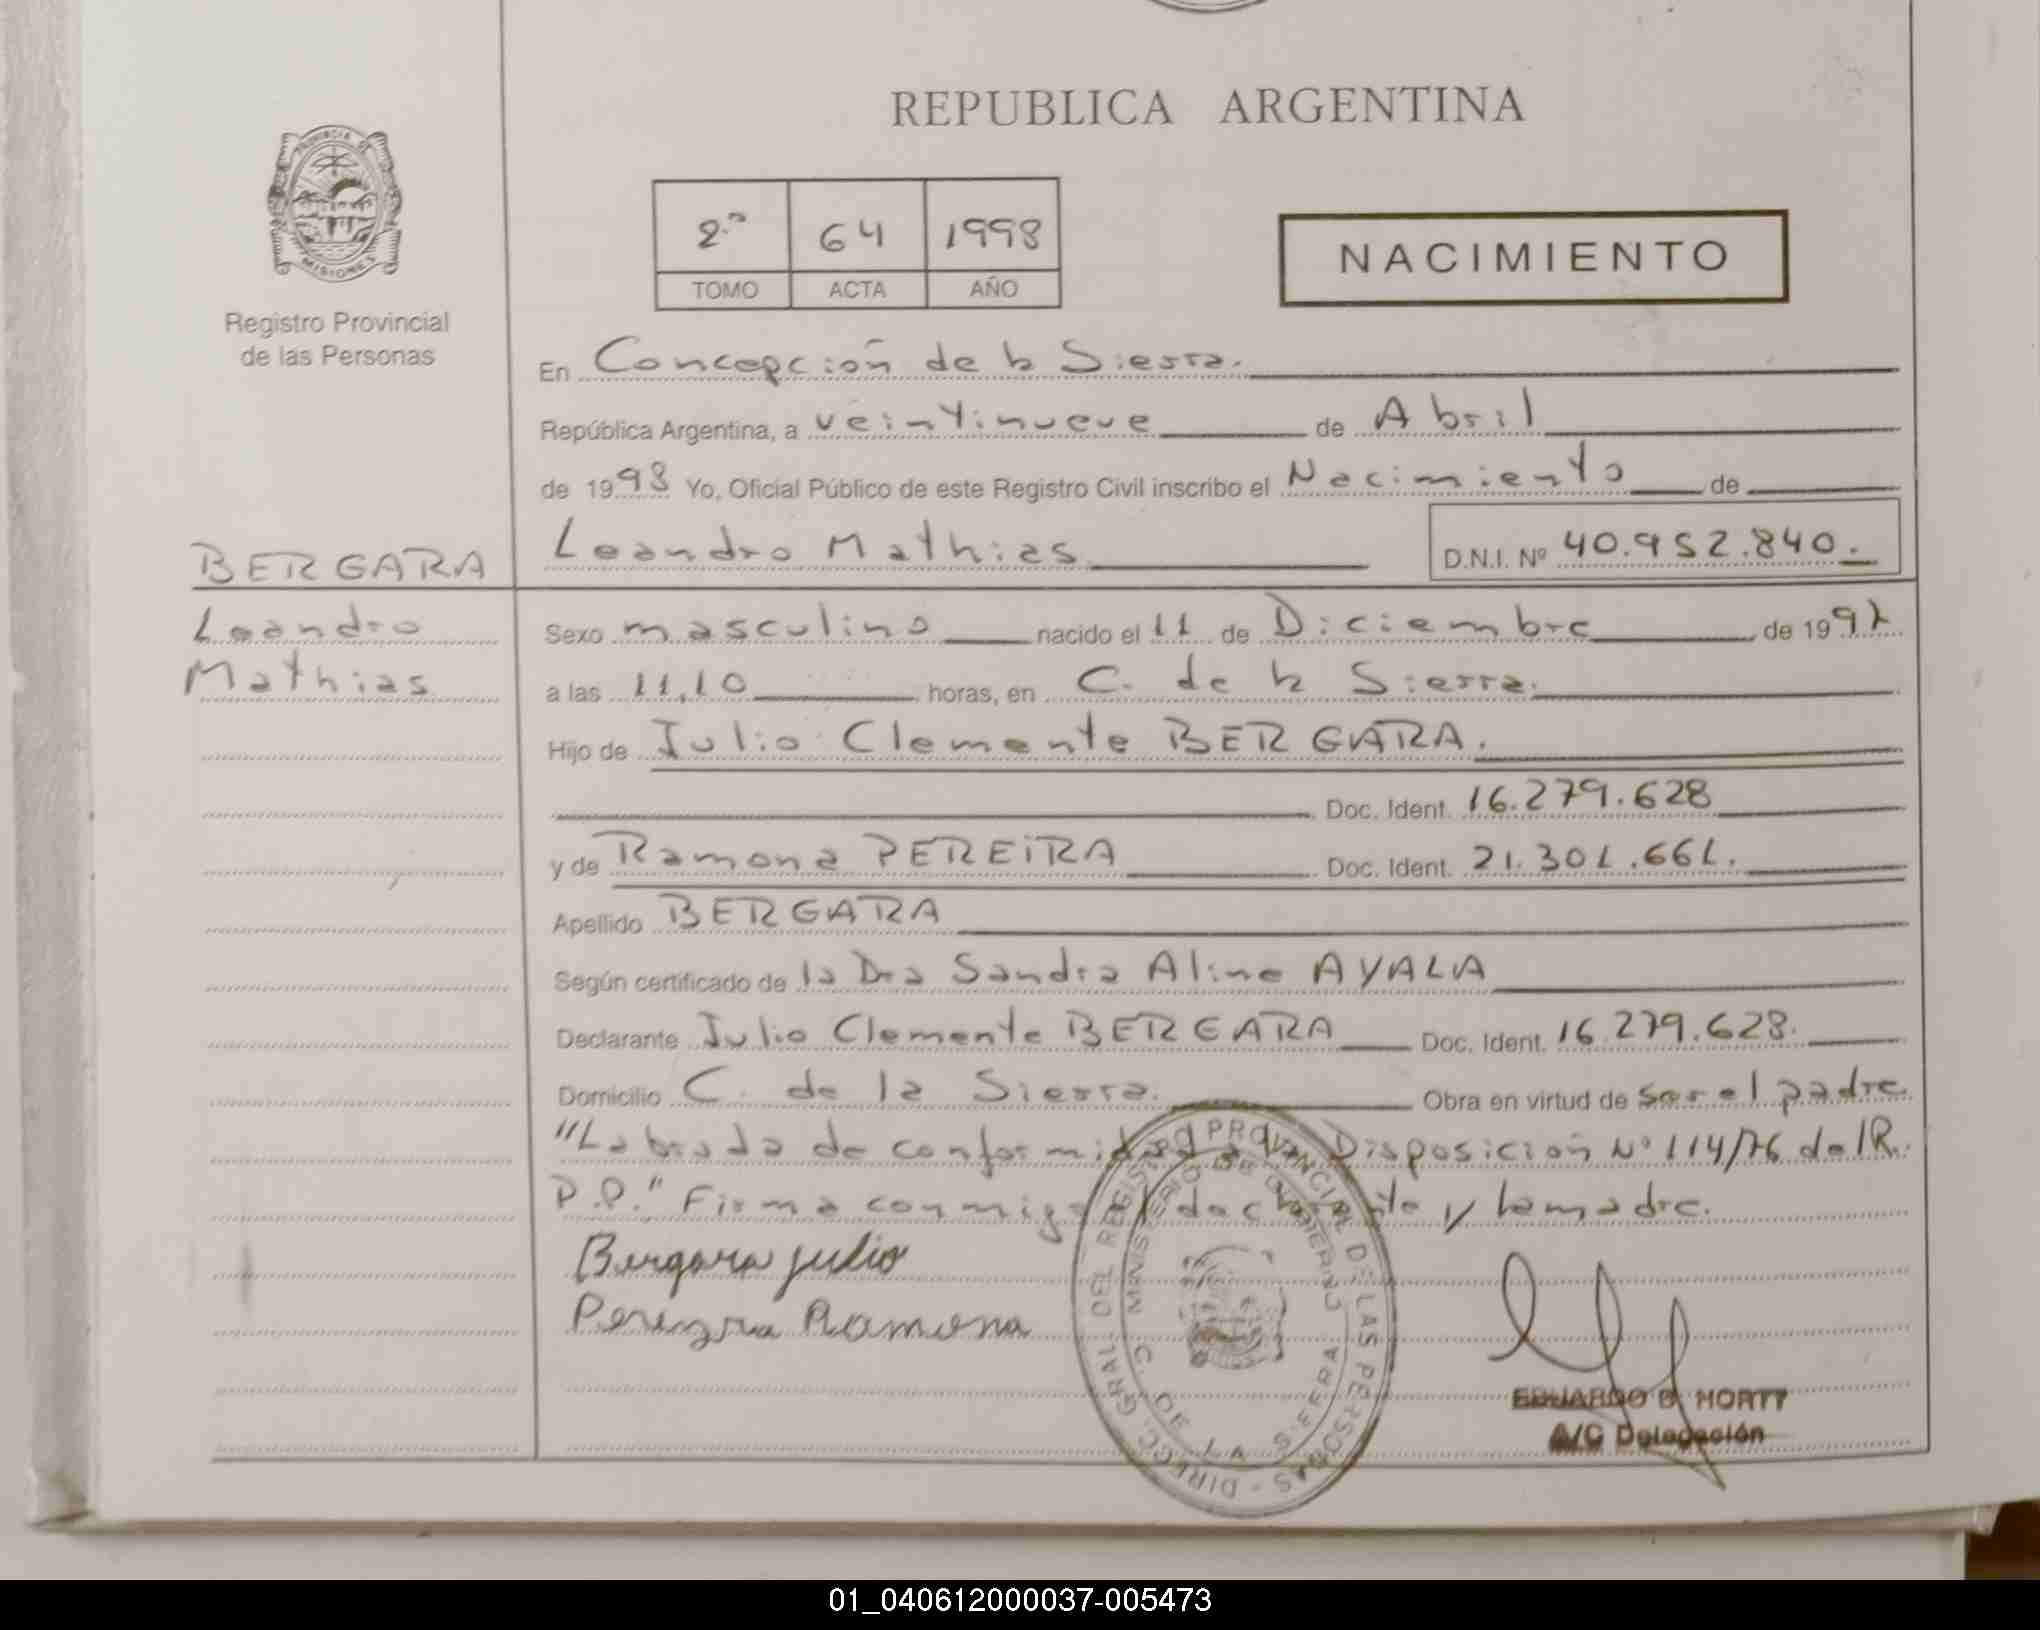 REPUBLICA ARGENTINA
PROVINCIA DE MISIONES
Registro Provincial
de las Personas
2.ª 64 1998
TOMO ACTA AÑO
NACIMIENTO
En Concepción de la Sierra.
República Argentina, a veintinueve de Abril
de 1998 Yo, Oficial Público de este Registro Civil inscribo el Nacimiento de
BERGARA Leandro Mathias D.N.I. Nº 40.952.840.
Leandro Sexo masculino nacido el 11 de Diciembre de 199
Mathias a las 11,10 horas, en C. de la Sierra.
Hijo de Julio Clemente BERGARA.
Doc. Ident. 16.279.628
y de Ramona PEREIRA Doc. Ident. 21.301.661.
Apellido BERGARA
Según certificado de la Dra Sandra Aline AYALA
Declarante Julio Clemente BERGARA Doc. Ident. 16.279.628.
Domicilio C. de la Sierra. Obra en virtud de ser el padre.
"Labrada de conformidad a la Disposición Nº 114/76 del R.
P.P." Firma conmigo el declarante y la madre.
Bergara julio
Pereyra Ramona
DIRECC. GRAL. DEL REGISTRO PROVINCIAL DE LAS PERSONAS
MINISTERIO DE GOBIERNO
C. DE LA SIERRA
EDUARDO B. HORTT
A/C Delegación
01_040612000037-005473